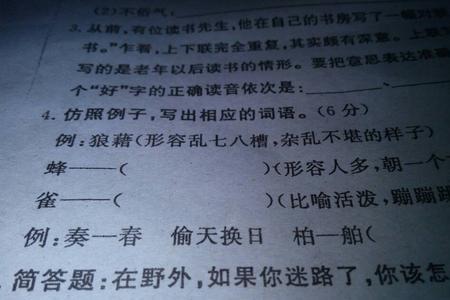 (2)不俗气:
3. 从前,有位读书先生,他在自己的书房写了一幅对
书。”乍看,上下联完全重复,其实颇有深意。上联
写的是老年以后读书的情形。要把意思表达准确
个“好”字的正确读音依次是:
4. 仿照例子,写出相应的词语。(6分)
例:狼藉(形容乱七八糟,杂乱不堪的样子)
蜂——( )(形容人多,朝一个
雀——( )(比喻活泼,蹦蹦跳
例:奏—春 偷天换日 柏—舶(
简答题:在野外,如果你迷路了,你该怎